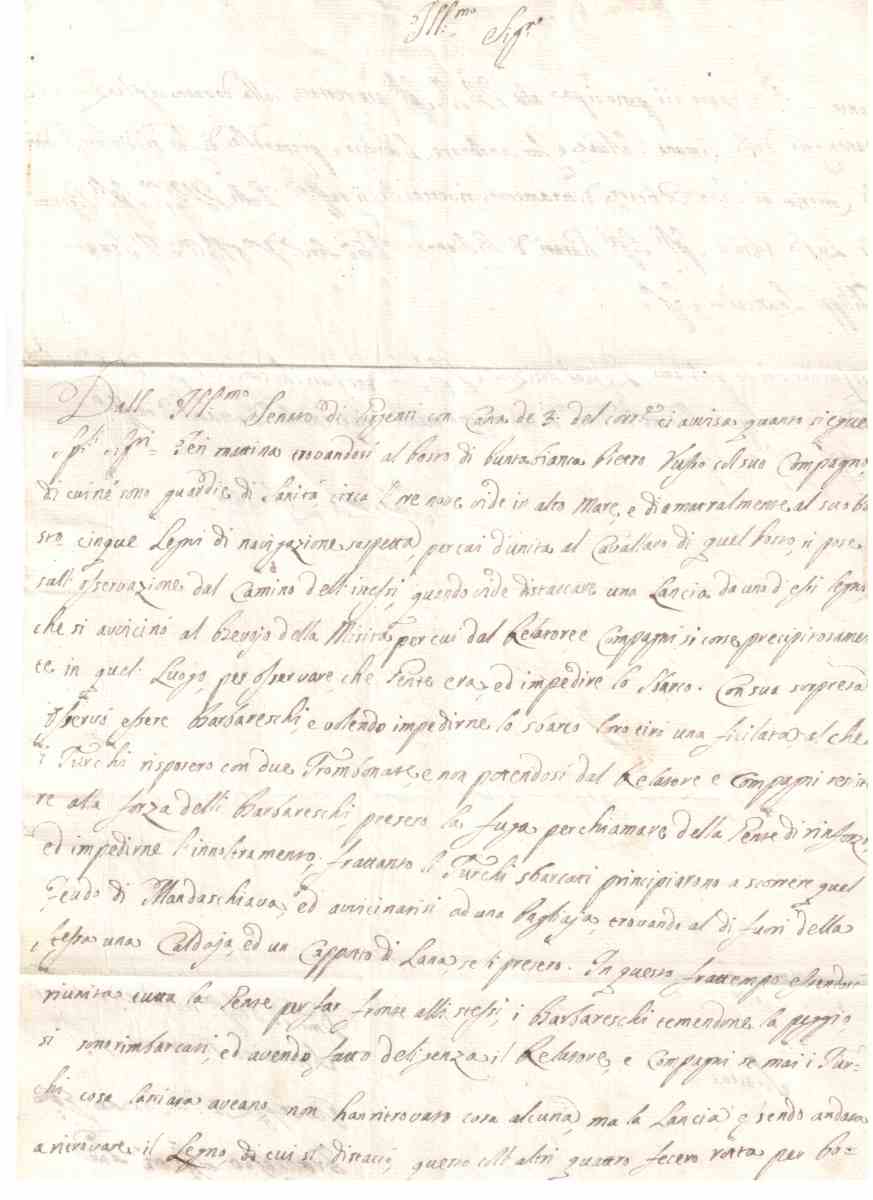 Ill:mo Sigre
Dall' Ill:mo Senato di Girgenti con Carta de 3: del corrte ci avvisa quanto siegue
Sp:li Sig:ri = Jeri mattina trovandosi al posto di Punta bianca Pietro Russo col suo Compagno,
di cui ne sono guardie di Sanità, circa l'ore nove vide in alto Mare, e diamatralmente al suo po
sto cinque Legni di navigazione sospetta, per cui d'unita al Cavallaro di quel posto, si pose
sull'osservazione dal Camino dell'istessi, quando vide distaccare una Lancia da uno d'essi legno,
che si avvicinò al della per cui dal Relatore e Compagni si corse precipitosamen
te in quel Luogo per osservare, che Gente era, ed impedire lo Sbarco. Con sua sorpresa
osservò essere Barbareschi, e volendo impedirne lo sbarco loro tirò una fucilata, al che
i Turchi risposero con due Trombonate, e non potendosi dal Relatore e Compagni resiste
re alla forza delli Barbareschi, presero la fuga per chiamare della Gente di rinforzo,
ed impedirne l'innoltramento; frattanto li Turchi sbarcati principiarono a scorrere quel
Feudo di Mandaschiava, ed avvicinatisi ad una Pagliaja, trovando al di fuori della
stessa una Caldaja, ed un Cappotto di Lana, se li presero. In questo frattempo essendosi
riunita tutta la Gente per far fronte alli stessi, i Barbareschi temendone la peggio
si sono rimbarcati, ed avendo fatto deligenza il Relatore, e Compagni se mai i Tur-
chi cosa lasciata aveano, non han ritrovato cosa alcuna, ma la Lancia essendo andata
a ritrovare il Legno, di cui si distaccò, questo coll'altri quattro fecero rotta per Po=